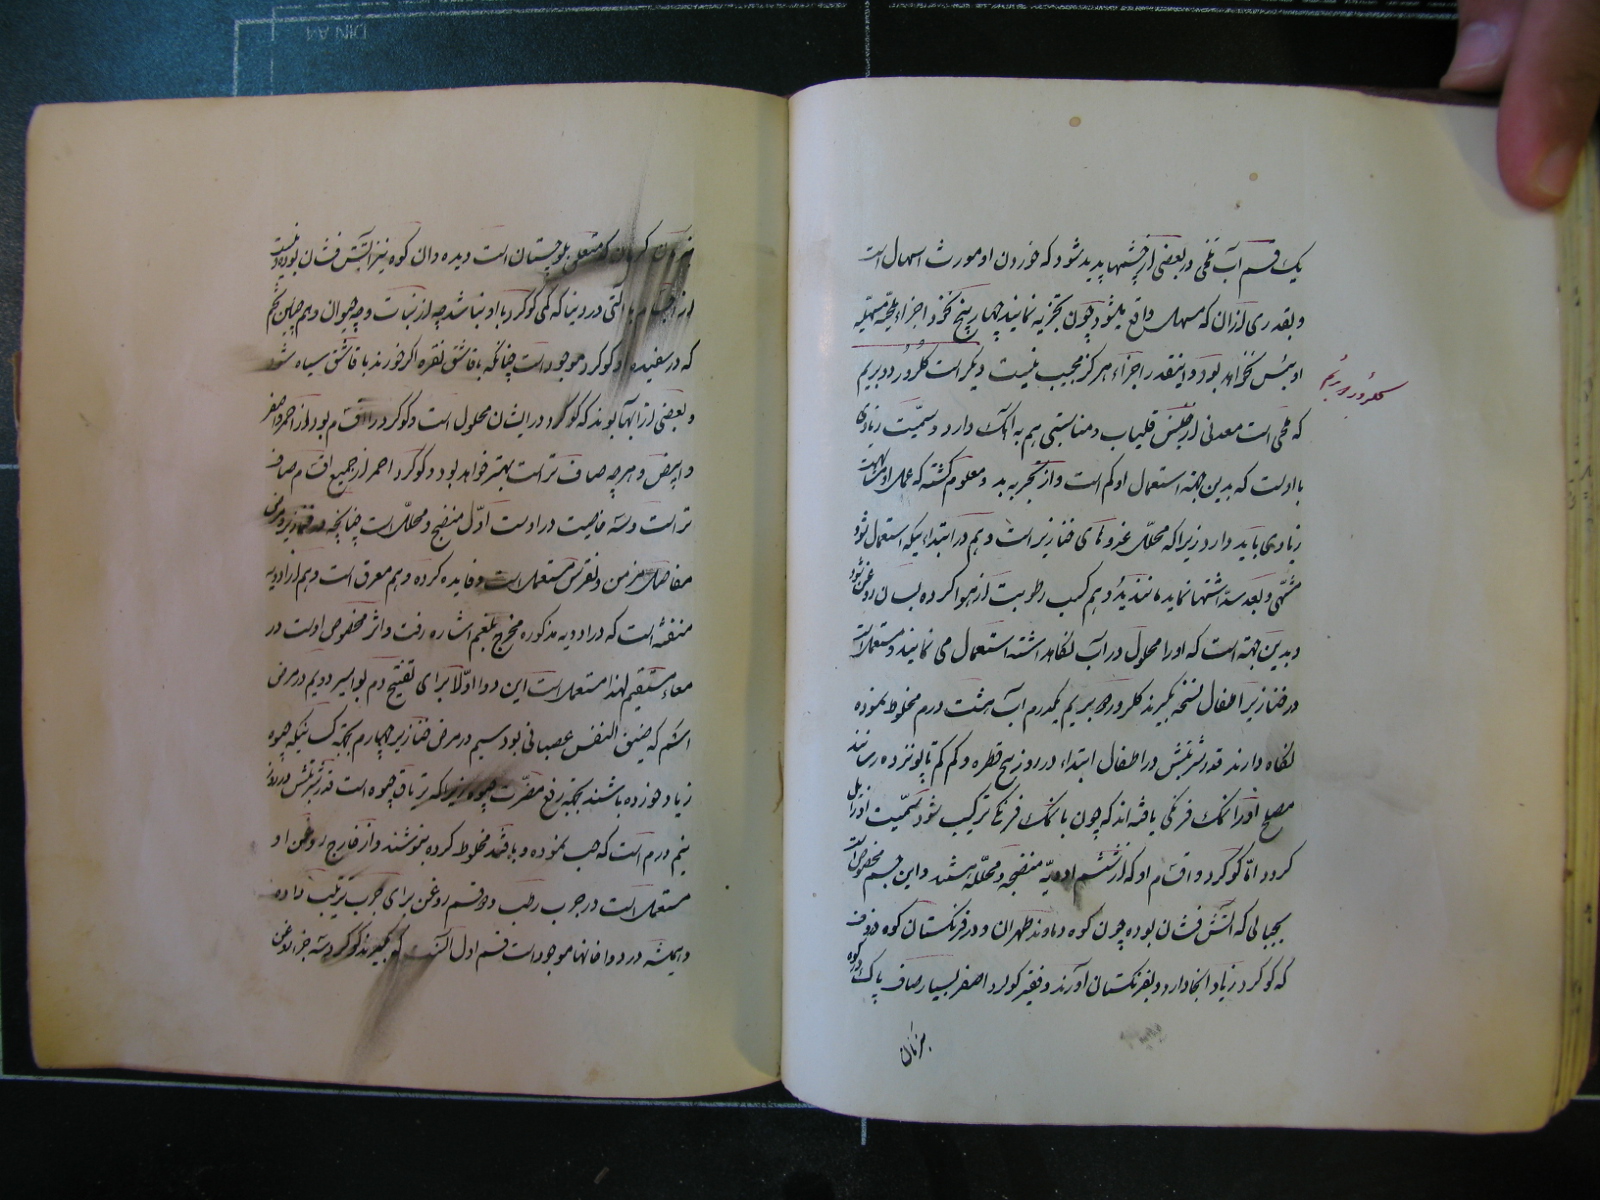 یک قسم آب تلخی در بعضی از چشمها پدید شود که خوردن او مورث اسهال است
و بقدری از آن که مسهل واقع میشود چون تجزیه نمایند چهار پنج نخود اجزاء ملحیّه مسهلیه
او بیش نخواهد بود و اینقدر اجزاء هرگز مجیب نیست دیگر است کلرور دو بریم
کلرور دو بریم
که ملحی است معدنی از جنس قلیاب و مناسبتی هم به آهک دارد و سمّیت زیادی
با اوست که بدین جهة استعمال او کم است و از تجربه بد و معلوم گشته که عمل او شباهت
زیادی باید دارد زیرا که محلّل غرو های خنازیر است و هم در ابتداء نیکه استعمال شود
مشهّی و بعد سدّ اشتها نماید مانند ید و هم کسب رطوبت از هوا کرده بسان روغن شود
و بدین جهة است که او را محلول در آب نگاهداشته استعمال می نمایند و مستعمل است
در خنازیر اطفال نسخه بگیرند کلرور دو بریم یکدرم آب هشت درم مخلوط نموده
نگاه دارند قدر شربتش در اطفال ابتداء در روز پنج قطره و کم کم تا پانزده رسانند
مصلح او را نمک فرنگی یافته اند که چون با نمک فرنگی ترکیب شود سمّیت او زایل
کردد امّا کوکرد و اقسام او که از ششم ادویّه منضجه و محلّله هستند و این قسم مخصوص است
بجبالی که آتش فشان بوده چون کوه دماوند طهران و در فرنکستان کوه
که کوکرد زیاد آنجا دارد و بفرنکستان آورند و فقیر کوکرد اصفر بسیار صاف پاک در کوه
که متعلق ببلوچستان است دیده و آن کوه نیز آتش فشان بوده و نیست
در دنیا که کمی کوکرد با او نباشد چه از نباتات و چه حیوان و هم چنین تخم
که در سفیده او کوکرد موجود است چنانکه با قاشق نقره اکر خورند با قاشق سیاه شود
و بعضی از آبها بوند که کوکرد در ایشان محلول است و کوکرد را اقسام بود از احمر و اصفر
و ابیض و هر چه صاف تر است بهتر خواهد بود و کوکرد احمر از جمیع اقسام صاف
تر است و سه خاصیت در اوست اوّل منضج و محلّل است چنانچه در خنازیر و
مفاصل مزمن و نقرس مستعمل است و فایده کرده و هم معرق است و هم از ادویه
منفثه است که در ادویه مذکوره مخرج بلغم اشاره رفت و اثر مخصوص اوست در
معاء مستقیم لهذا مستعمل است این دوا اوّلا برای تفتیح دم بواسیر دویم در مرض
که ضیق النفس عصبانی بود سیم در مرض خنازیر چهارم بجهة کسانیکه جیوه
زیاد خورده باشند بجهة رفع مضرّت جیوه زیرا که تریاق جیوه است قدر شربتش در روز
نیم درم است که حب نموده و یا با قند مخلوط کرده بنوشند و از خارج روغن او
مستعمل است در جرب رطب و دو قسم روغن برای جرب ترتیب داده
و همیشه در دواخانها موجود است قسم اول آنست که بگیرند کوکرد سه جزء روغن